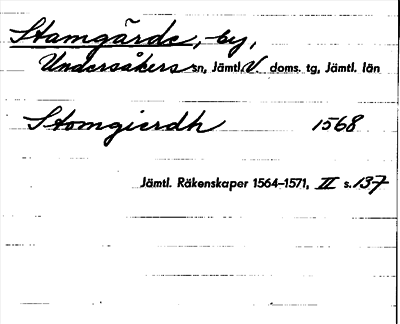 Stamgärde, by,
Undersåkers sn, Jämtl. V doms. tg, Jämtl. län
Stomgierdh 1568
Jämtl. Räkenskaper 1564–1571, II s. 137